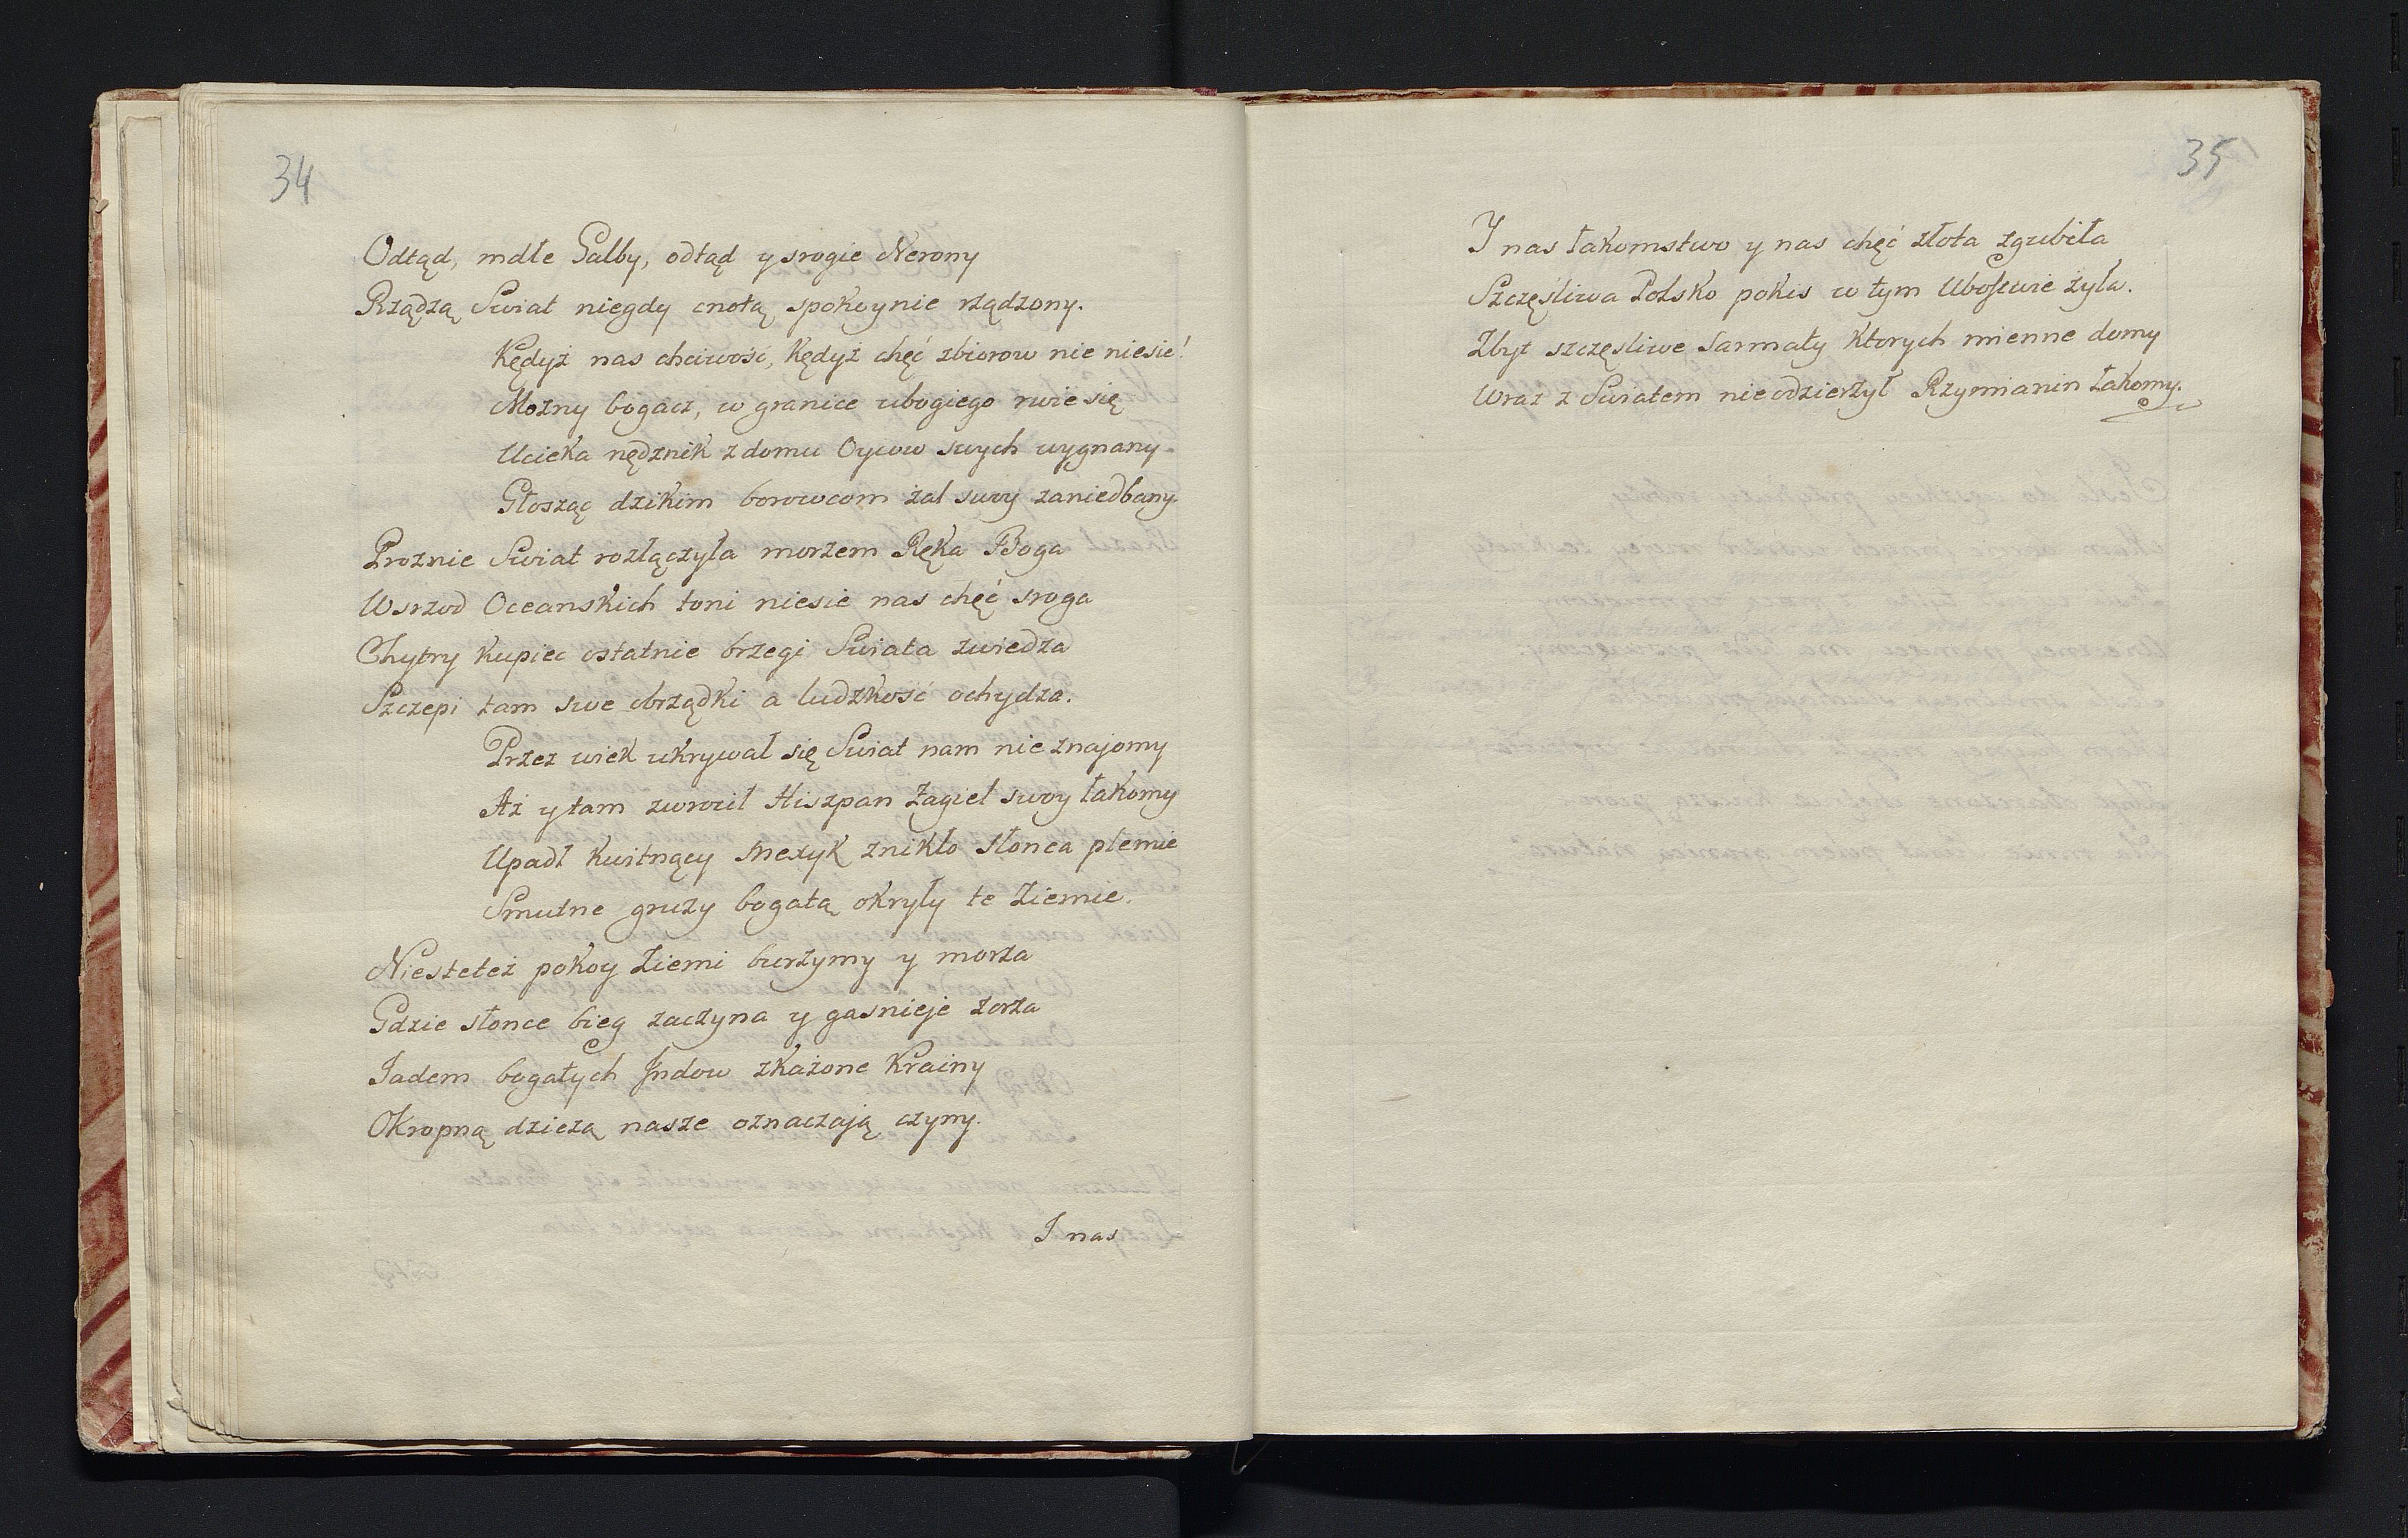 34
Odtąd, mdłe Galby, odtąd y srogie Nerony
Rządzą Swiat niegdy cnotą spokoynie rządzony.
Kędyż nas chciwość, kędyż chęć zbiorow nie niesie!
Mozny bogacz, w granice ubogiego rwie się
Ucieka nędznik z domu Oycow swych wygnany
Głosząc dzikim borowcom żal swoy zaniedbany.
Proznie Swiat rozłączyła morzem Ręka Boga
Wsrzod Oceanskich toni niesie nas chęć sroga
Chytry kupiec ostatnie brzegi Swiata zwiedza
Szczepi tam swe obrządki a ludzkość ochydza.
Przez wiek ukrywał się Swiat nam nieznajomy
Aż y tam zwrocił Hiszpan żagiel swoy łakomy
Upadł kwitnący Mexyk znikło słonca plemie
Smutne gruzy bogatą okryły te Ziemie.
Niesteteż pokoy Ziemi burzymy y morza
Gdzie słonce bieg zaczyna y gasnieje zorza
Jadem bogatych Jndow zkażone Krainy
Okropną dziczą nasze oznaczają czyny.
I nas
35
Y nas łakomstwo y nas chęć złota zgubiła
Szczęśliwa Polsko pokis w tym Ubostwie żyła.
Zbyt szczęsliwe Sarmaty ktorych mienne domy
Wraz z Swiatem nieodzierżył Rzymianin łakomy.